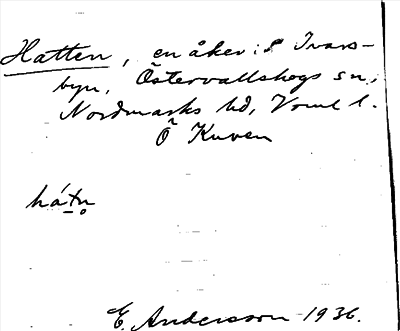 Hatten, en åker i S Ivars-
byn, Östervallskogs sn,
Nordmarks hd, Verml l.
Ö Kuven
hátn̥
E. Andersson 1936.